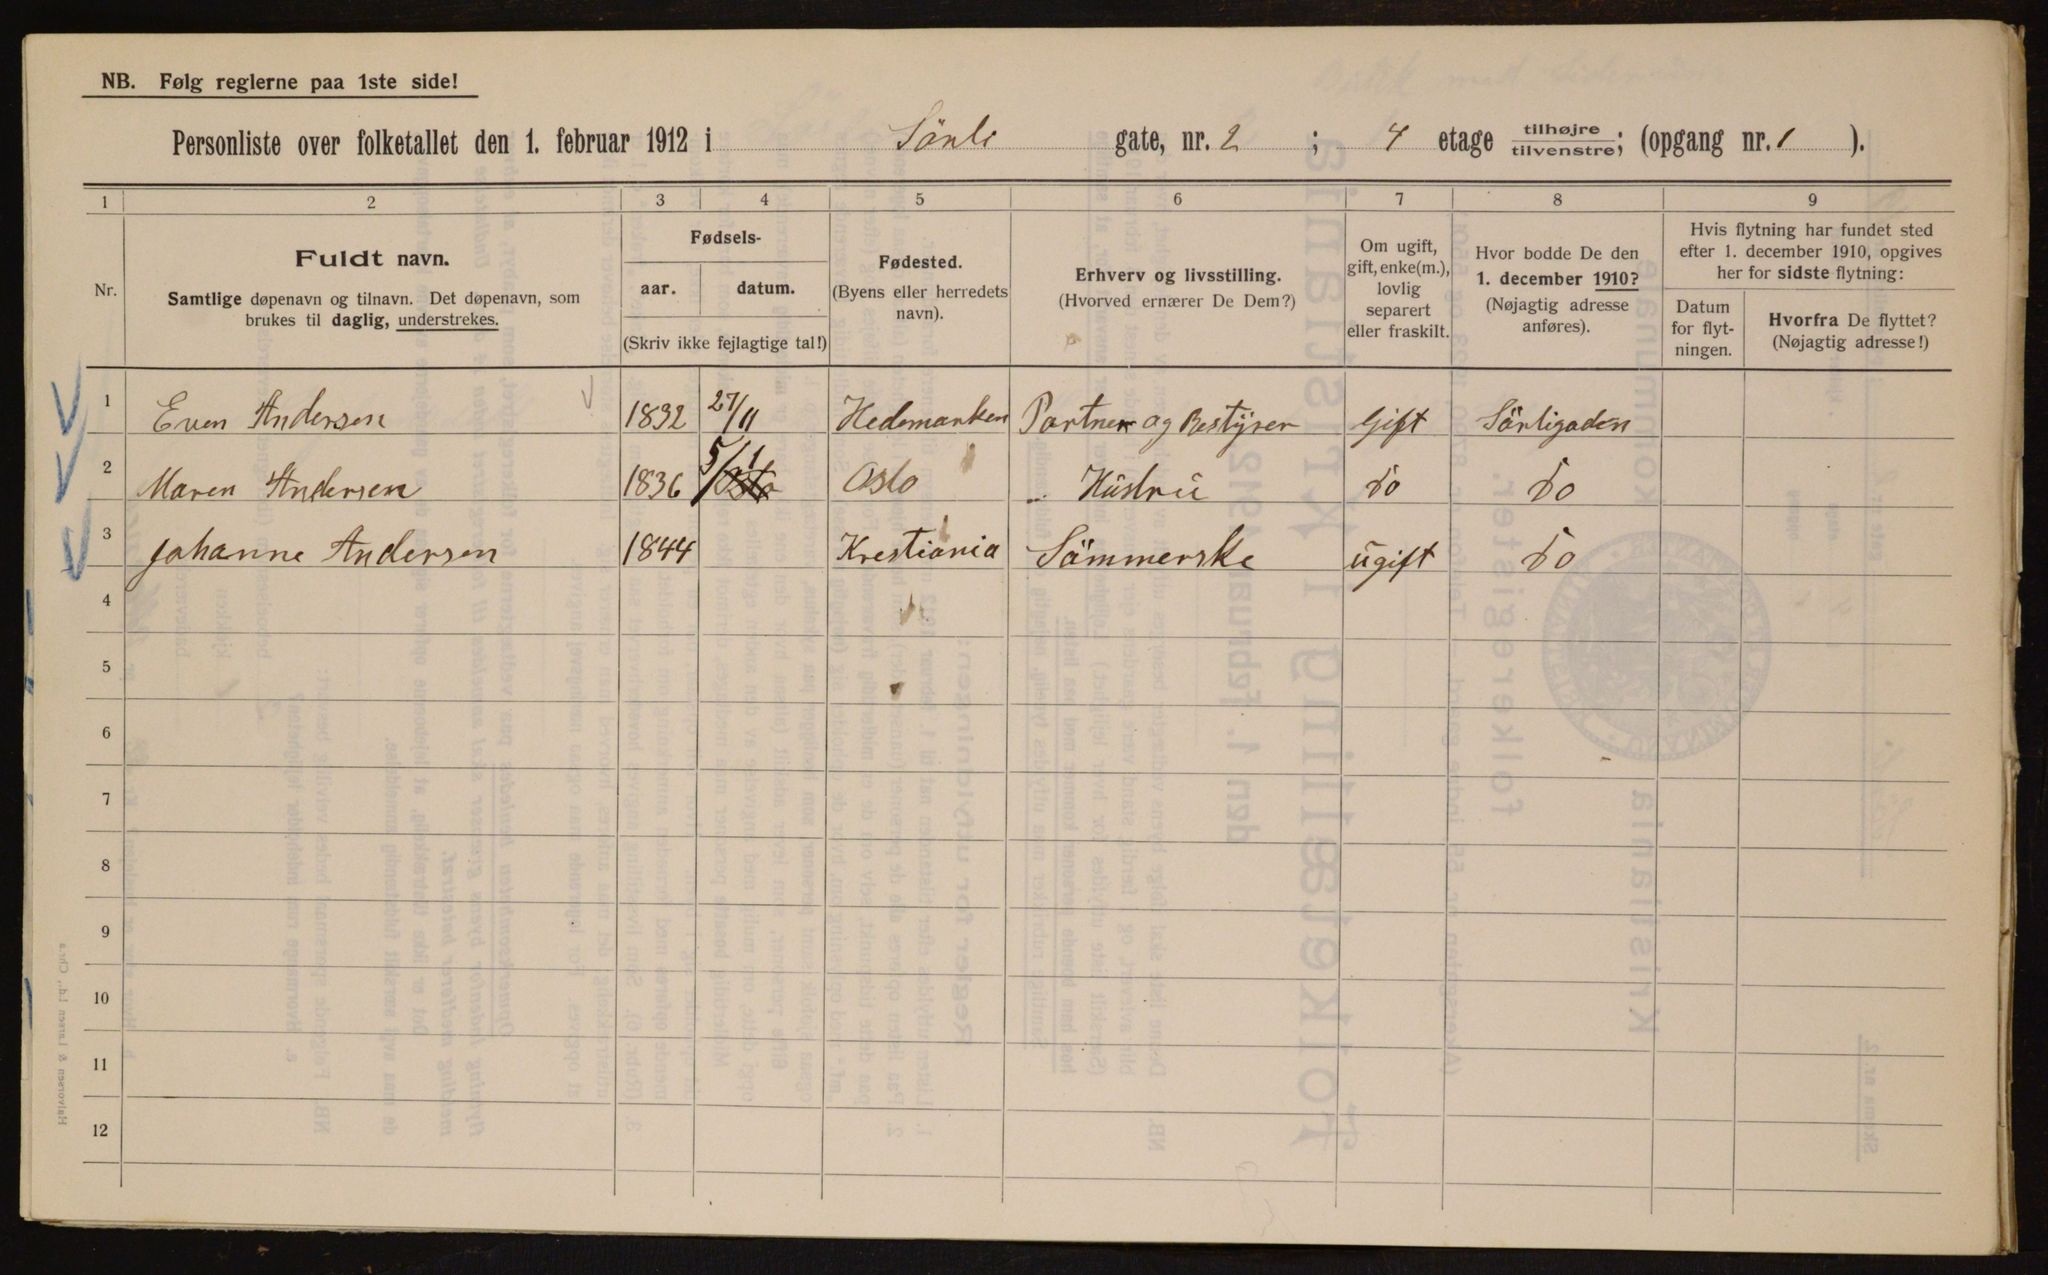 NB. Følg reglerne paa 1ste side!
Personliste over folketallet den 1. februar 1912 i Sörli gate, nr. 2 ; 4 etage tilhøjre/tilvenstre; (opgang nr. 1 ).
1 2 3 4 5 6 7 8 9
Nr.
Fuldt navn.
Samtlige døpenavn og tilnavn. Det døpenavn, som
brukes til daglig, understrekes.
Fødsels-
aar. datum.
(Skriv ikke fejlagtige tal!)
Fødested.
(Byens eller herredets
navn).
Erhverv og livsstilling.
(Hvorved ernærer De Dem?)
Om ugift,
gift, enke(m.),
lovlig
separert
eller fraskilt.
Hvor bodde De den
1. december 1910?
(Nøjagtig adresse
anføres).
Hvis flytning har fundet sted
efter 1. december 1910, opgives
her for sidste flytning:
Datum
for flyt-
ningen.
Hvorfra De flyttet?
(Nøjagtig adresse!)
1 Even Andersen 1832 27/11 Hedemarken Portner og Bestÿrer Gift Sörligaden
2 Maren Andersen 1836 5/1 Oslo Hüstrü Do Do
3 Johanne Andersen 1844 Krestiania Sömmerske ugift Do
4
5
6
7
8
9
10
11
12
Halvorsen & Larsen Ld., Chr.a